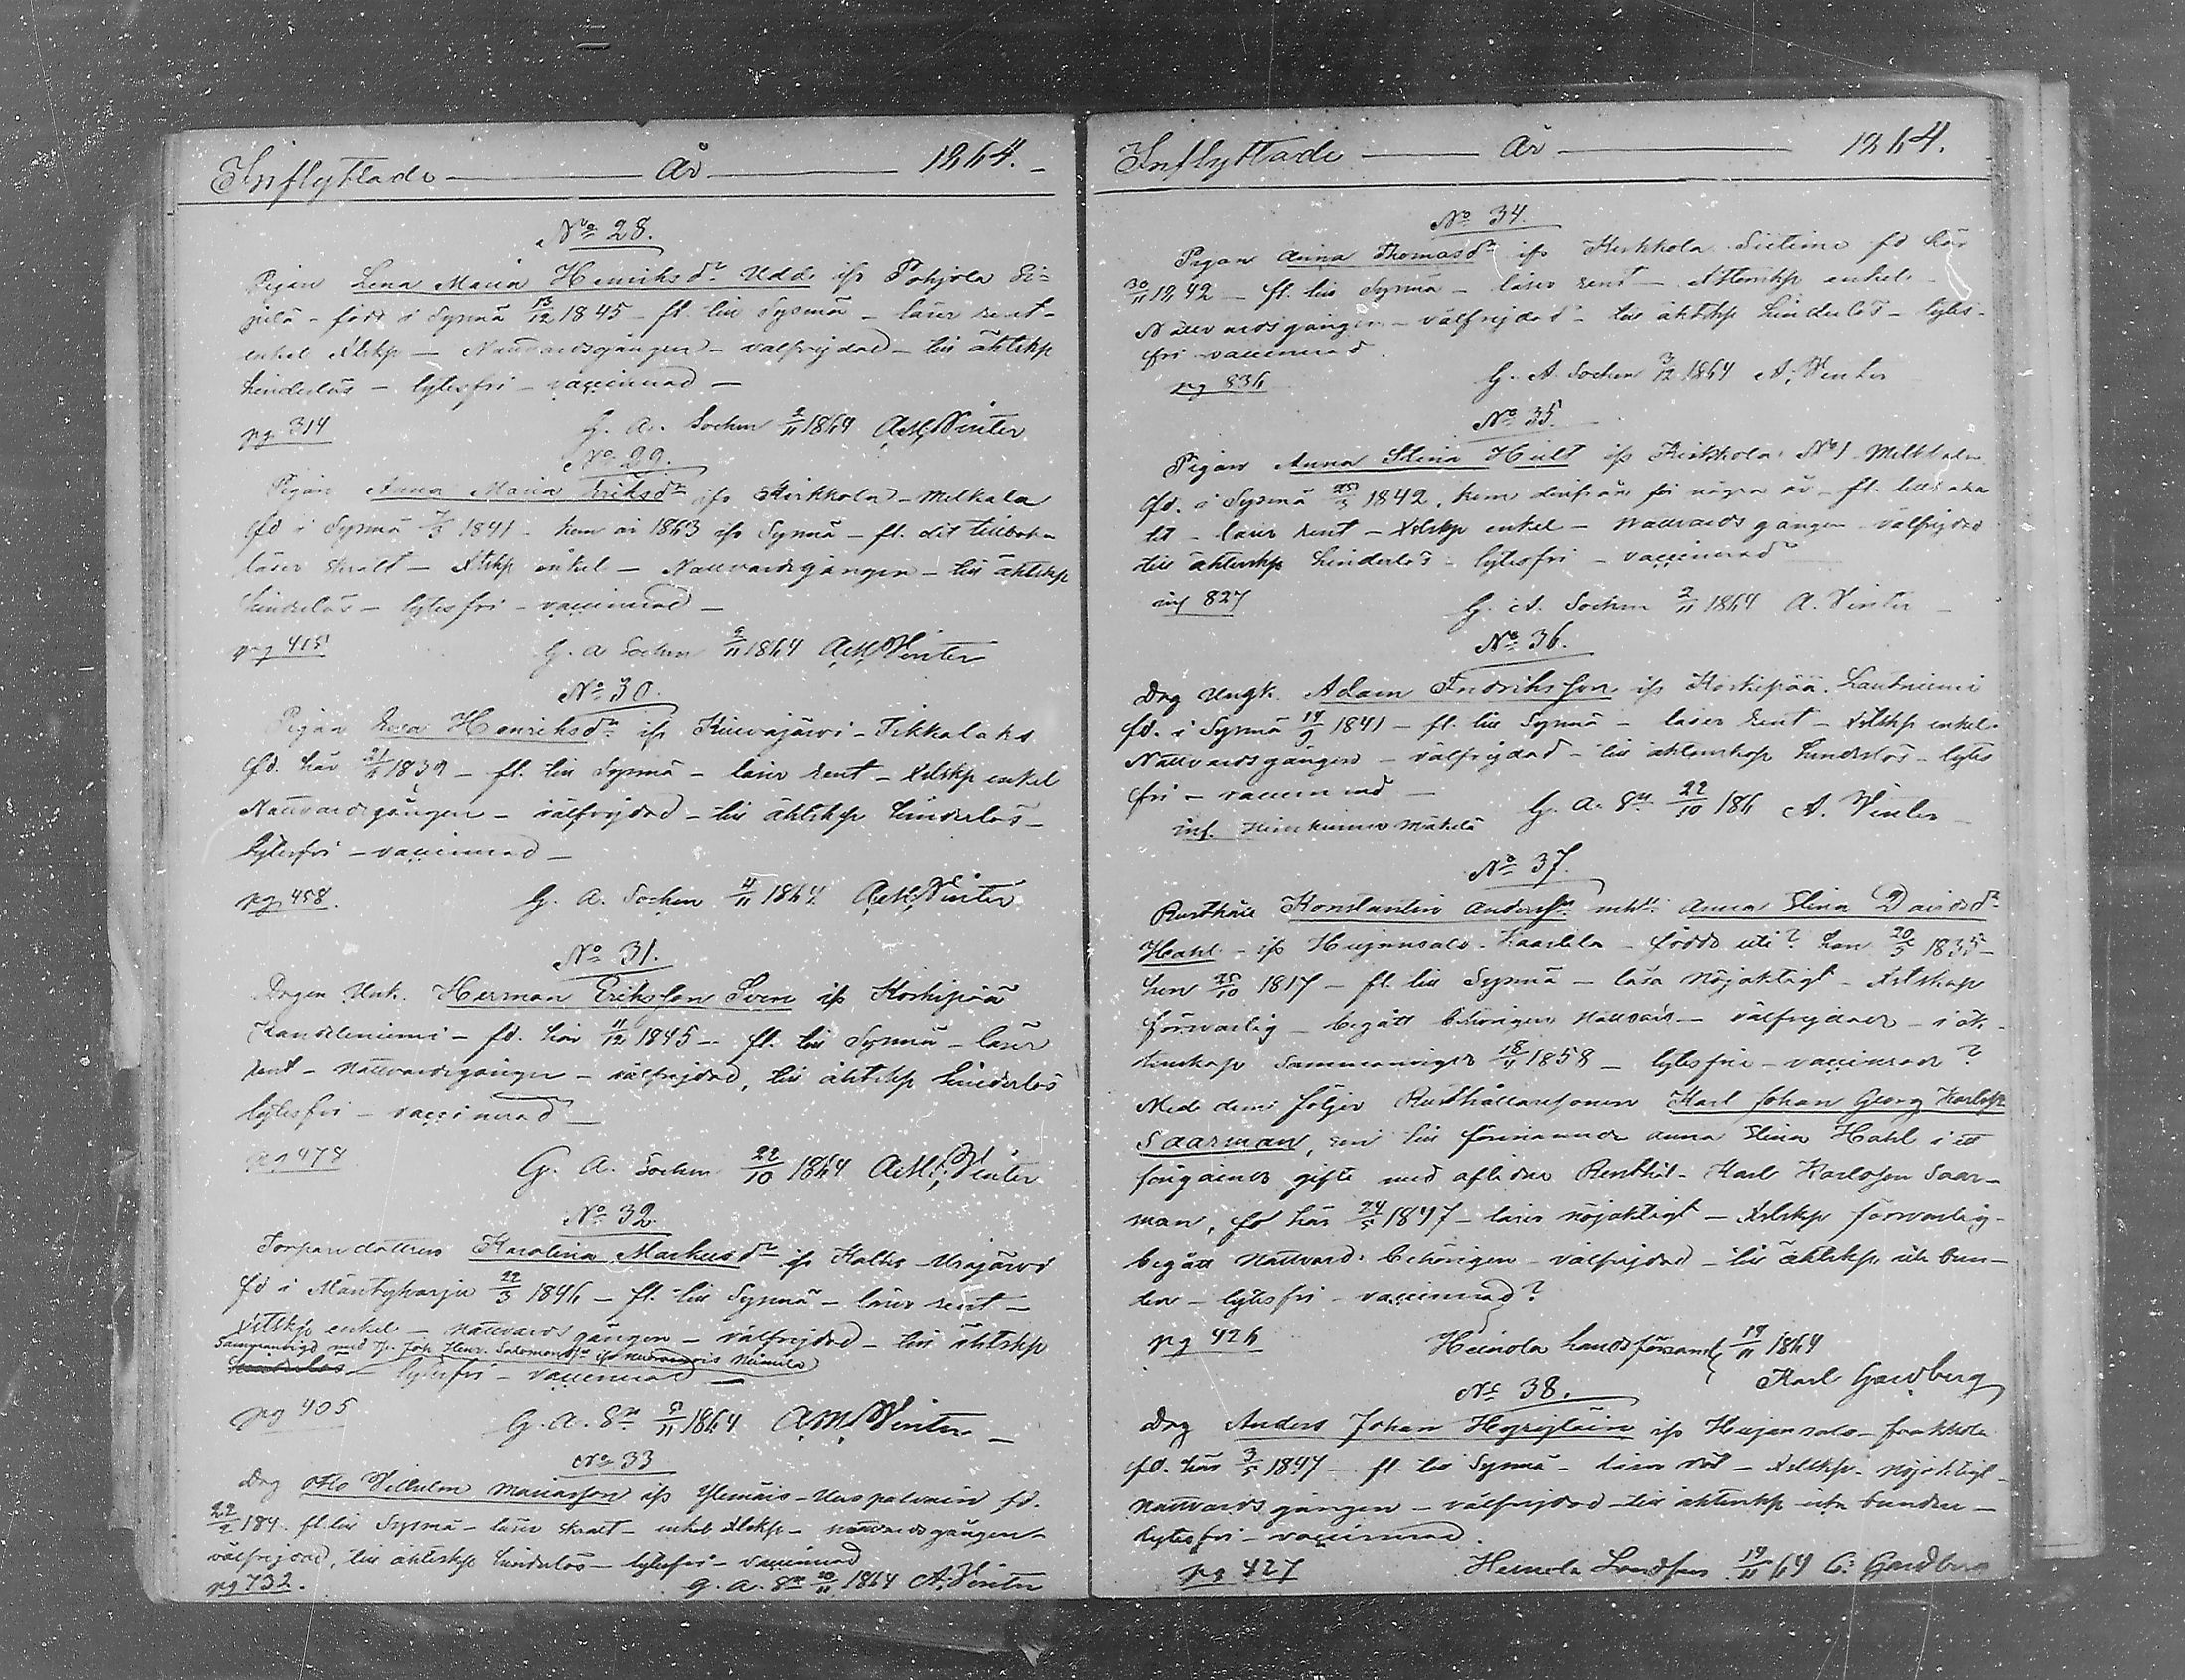 Inflyttade År 1864.
No 28.
Pigan Lena Maria Henriksdr Uddi ifr Pohjola
född i Sysmä 13/12 1845 - fl. till Sysmä - läser rent -
enkel Xtskp - Nattvardsgången - välfrejdad - till äktskp
hinderlös - lytesfri - vaccinerad -
pg 314 G. A. Socken 2/11 1864 A. M. Winter
No 29.
Pigan Anna Maria Eriksdr ifr Kirkkola - Melkala
fd i Sysmä 1841 - kom år 1863 ifr Sysmä - fl. dit tillbaka
läser svalt - Xtskp enkel - Nattvardsgången - till äktskp
hinderlös - lytesfri - vaccinerad -
pg 415 G. A. Socken 9/11 1864 A. M. Winter
No 30.
Pigan Henriksdr ifr Kuivajärvi - Tikkalaks
fd. här 1839 - fl. till Sysmä - läser rent - Xtskp enkel
Nattvardsgången - välfrejdad - till äktskp hinderlös -
lytesfri - vaccinerad -
pg 458. G. A. Socken 4/11 1864 A. M. Winter
No 31.
Drgen Unk. Herman Eriksson Sven ifr Koskipää
fd. här 11/12 1845 - fl. till Sysmä - läser
rent - Nattvardsgången - välfrejdad, till äktskp hinderlös
lytesfri - vaccinerad -
pg 478 G. A. Socken 22/10 1864 A. M. Winter
No 32.
Torpardottren Karolina Markusdr ifr Kalho Urajärvi
fd i Mäntyharju 22/3 1846 - fl. till Sysmä - läser rent -
Xtskp enkel - Nattvardsgången - välfrejdad - till äktskp
Sammanvigd med Joh. Henr. Salomonss ifr Niemilä
hinderlös - lytesfri - vaccinerad -
pg 405 G. A. Sn 9/11 1864 A. M. Winter -
No 33
Drg Otto Wilhelm Mariasson ifr fd.
22/2 184 fl. till Sysmä - läser svalt - enkel Xtskp - nattvardsgången -
välfrejdad, till äktskp hinderlös - lytesfri - vaccinerad
pg 732. G. A. Sn 20/11 1864 A. Winter
Inflyttade År 1864.
No 34.
Pigan Anna Thomasdr ifr Kirkkola fd här
30/11 1842 - fl. till Sysmä - läser rent - Xtenskp enkel -
Nattvardsgången - välfrejdad - till äktskp hinderlös - lytes-
fri - vaccinerad.
pg 836 G. A. Socken 3/12 1864 A. Winter
No 35.
Pigan Anna Stina Hult ifr Kirkkola No 1
fd. i Sysmä 25/3 1842, kom därifrån för några år - fl. tillbaka
dit - läser rent - Xtskp enkel - nattvardsgången - välfrejdad
till äktenskp hinderlös - lytesfri - vaccinerad
inf 827 G. A. Socken 2/11 1864 A. Winter -
No 36.
Drg Ungk. Adam Fredriksson ifr Koskipää
fd. i Sysmä 14/9 1841 - fl. till Sysmä - läser rent - Xtskp enkel -
Nattvardsgången - välfrejdad - till äktenskap hinderlös - lytes
fri - vaccinerad -
inf. Mäkelä G. A. Sn 22/10 186 A. Winter -
No 37.
Rusthåll Konstantin Anderssn mhu Anna Stina Davidsdr
Hahl - ifr Hujansalo Kaarlela - födda uti? han 20/5 1835 -
hon 25/10 1817 - fl. till Sysmä - läsa nöjaktigt - Xtskap
försvarlig - begått behörigen nattvard - välfrejdade - i äk-
tenskap sammanvigde 18/4 1858 - lytesfria - vaccinerade?
Med dem följer Rusthållaresonen Karl Johan Georg Karlssn
Saarman, son till förenämnde Anna Stina Hahl i ett
föregående gifte med aflidne Rusthål. Karl Karlsson Saar-
man, fd här 24/5 1847 - läser nöjaktigt - Xtskp försvarlig -
begått Nattvard behörigen - välfrejdad - till äktskp obun-
den - lytesfri - vaccinerad?
pg 426 Heinola landsförsaml 19/11 1864
Karl Gardberg
No 38.
Drg Anders Johan ifr Hujansalo
fd. här 3/5 1847 - fl. till Sysmä - läser - Xtskp. nöjaktigt -
nattvardsgången - välfrejdad - till äktenskp obunden -
lytesfri - vaccinerad.
pg 427 Heinola Landsförs 19/11 64 C: Gardberg